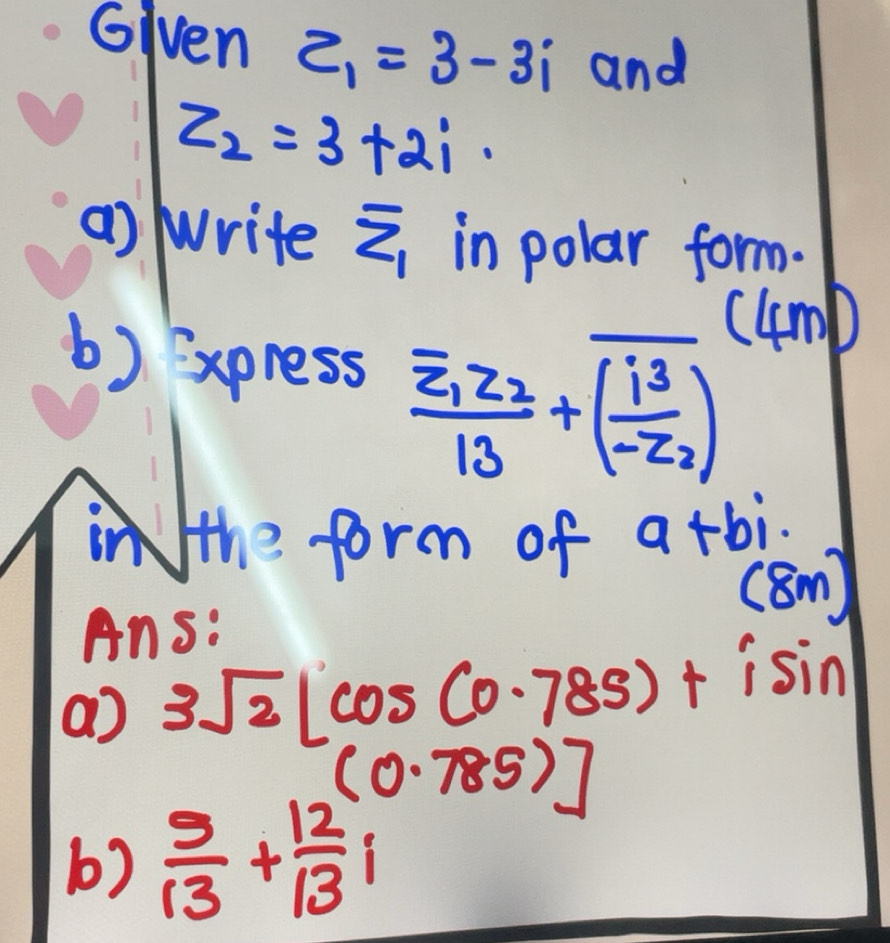 Given z₁ = 3 - 3i and
z₂ = 3 + 2i.
a) Write z̄₁ in polar form.
(4m)
b) Express z̄₁z₂/13 + \overline{(i³/-z₂)}
in the form of a+bi.
(8m)
Ans:
a) 3√2 [cos (0.785) + i sin
(0.785)]
b) 9/13 + 12/13 i